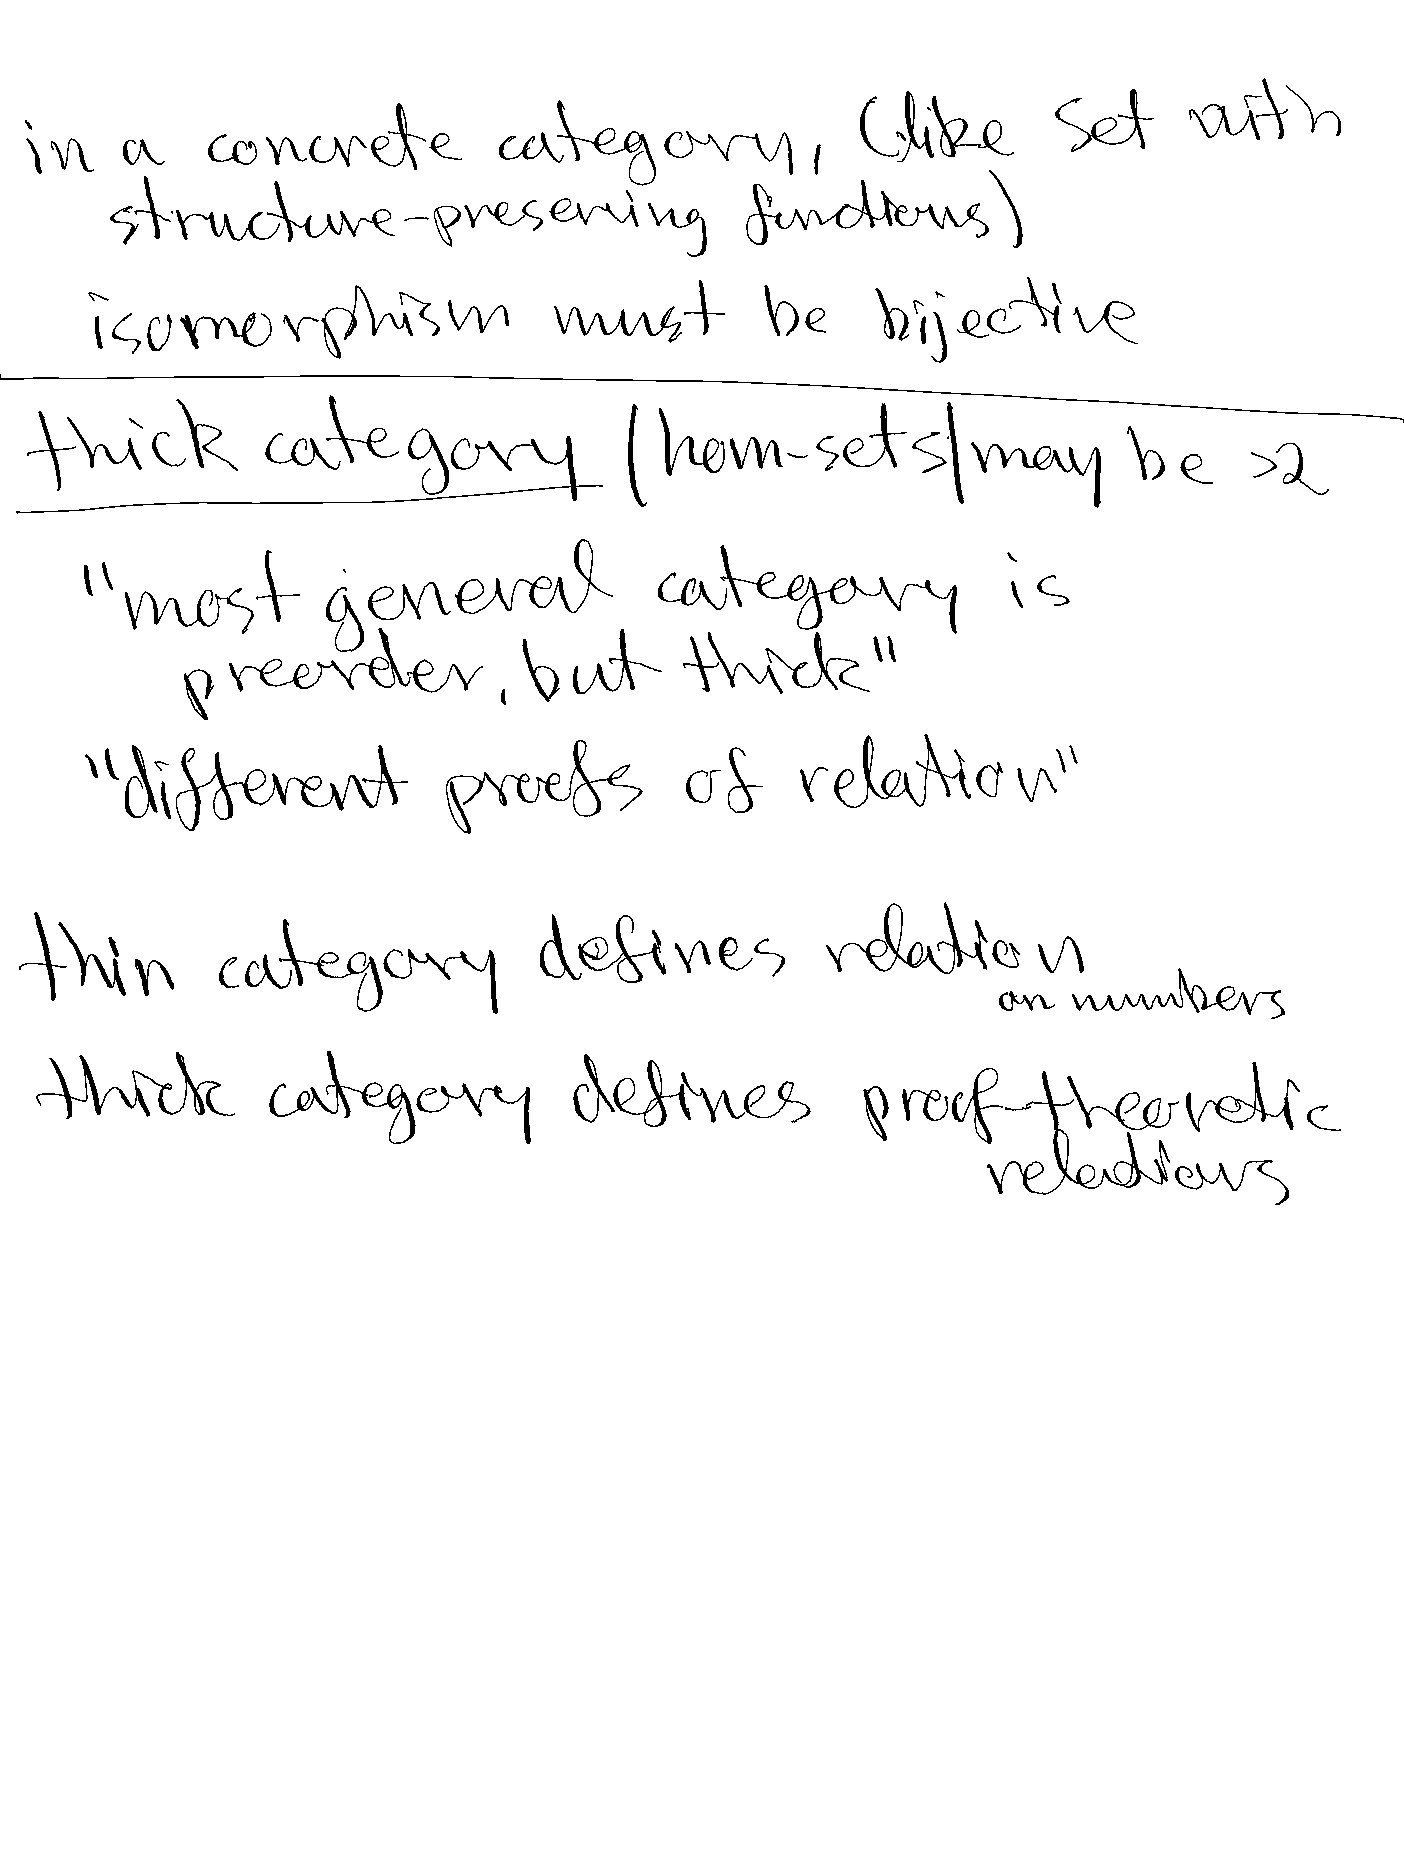 in a concrete category, (like Set with
structure-preserving functions)
isomorphism must be bijective
thick category |hom-sets| may be >2
"most general category is
preorder, but thick"
"different proofs of relation"
thin category defines relation
on numbers
thick category defines proof-theoretic
relations